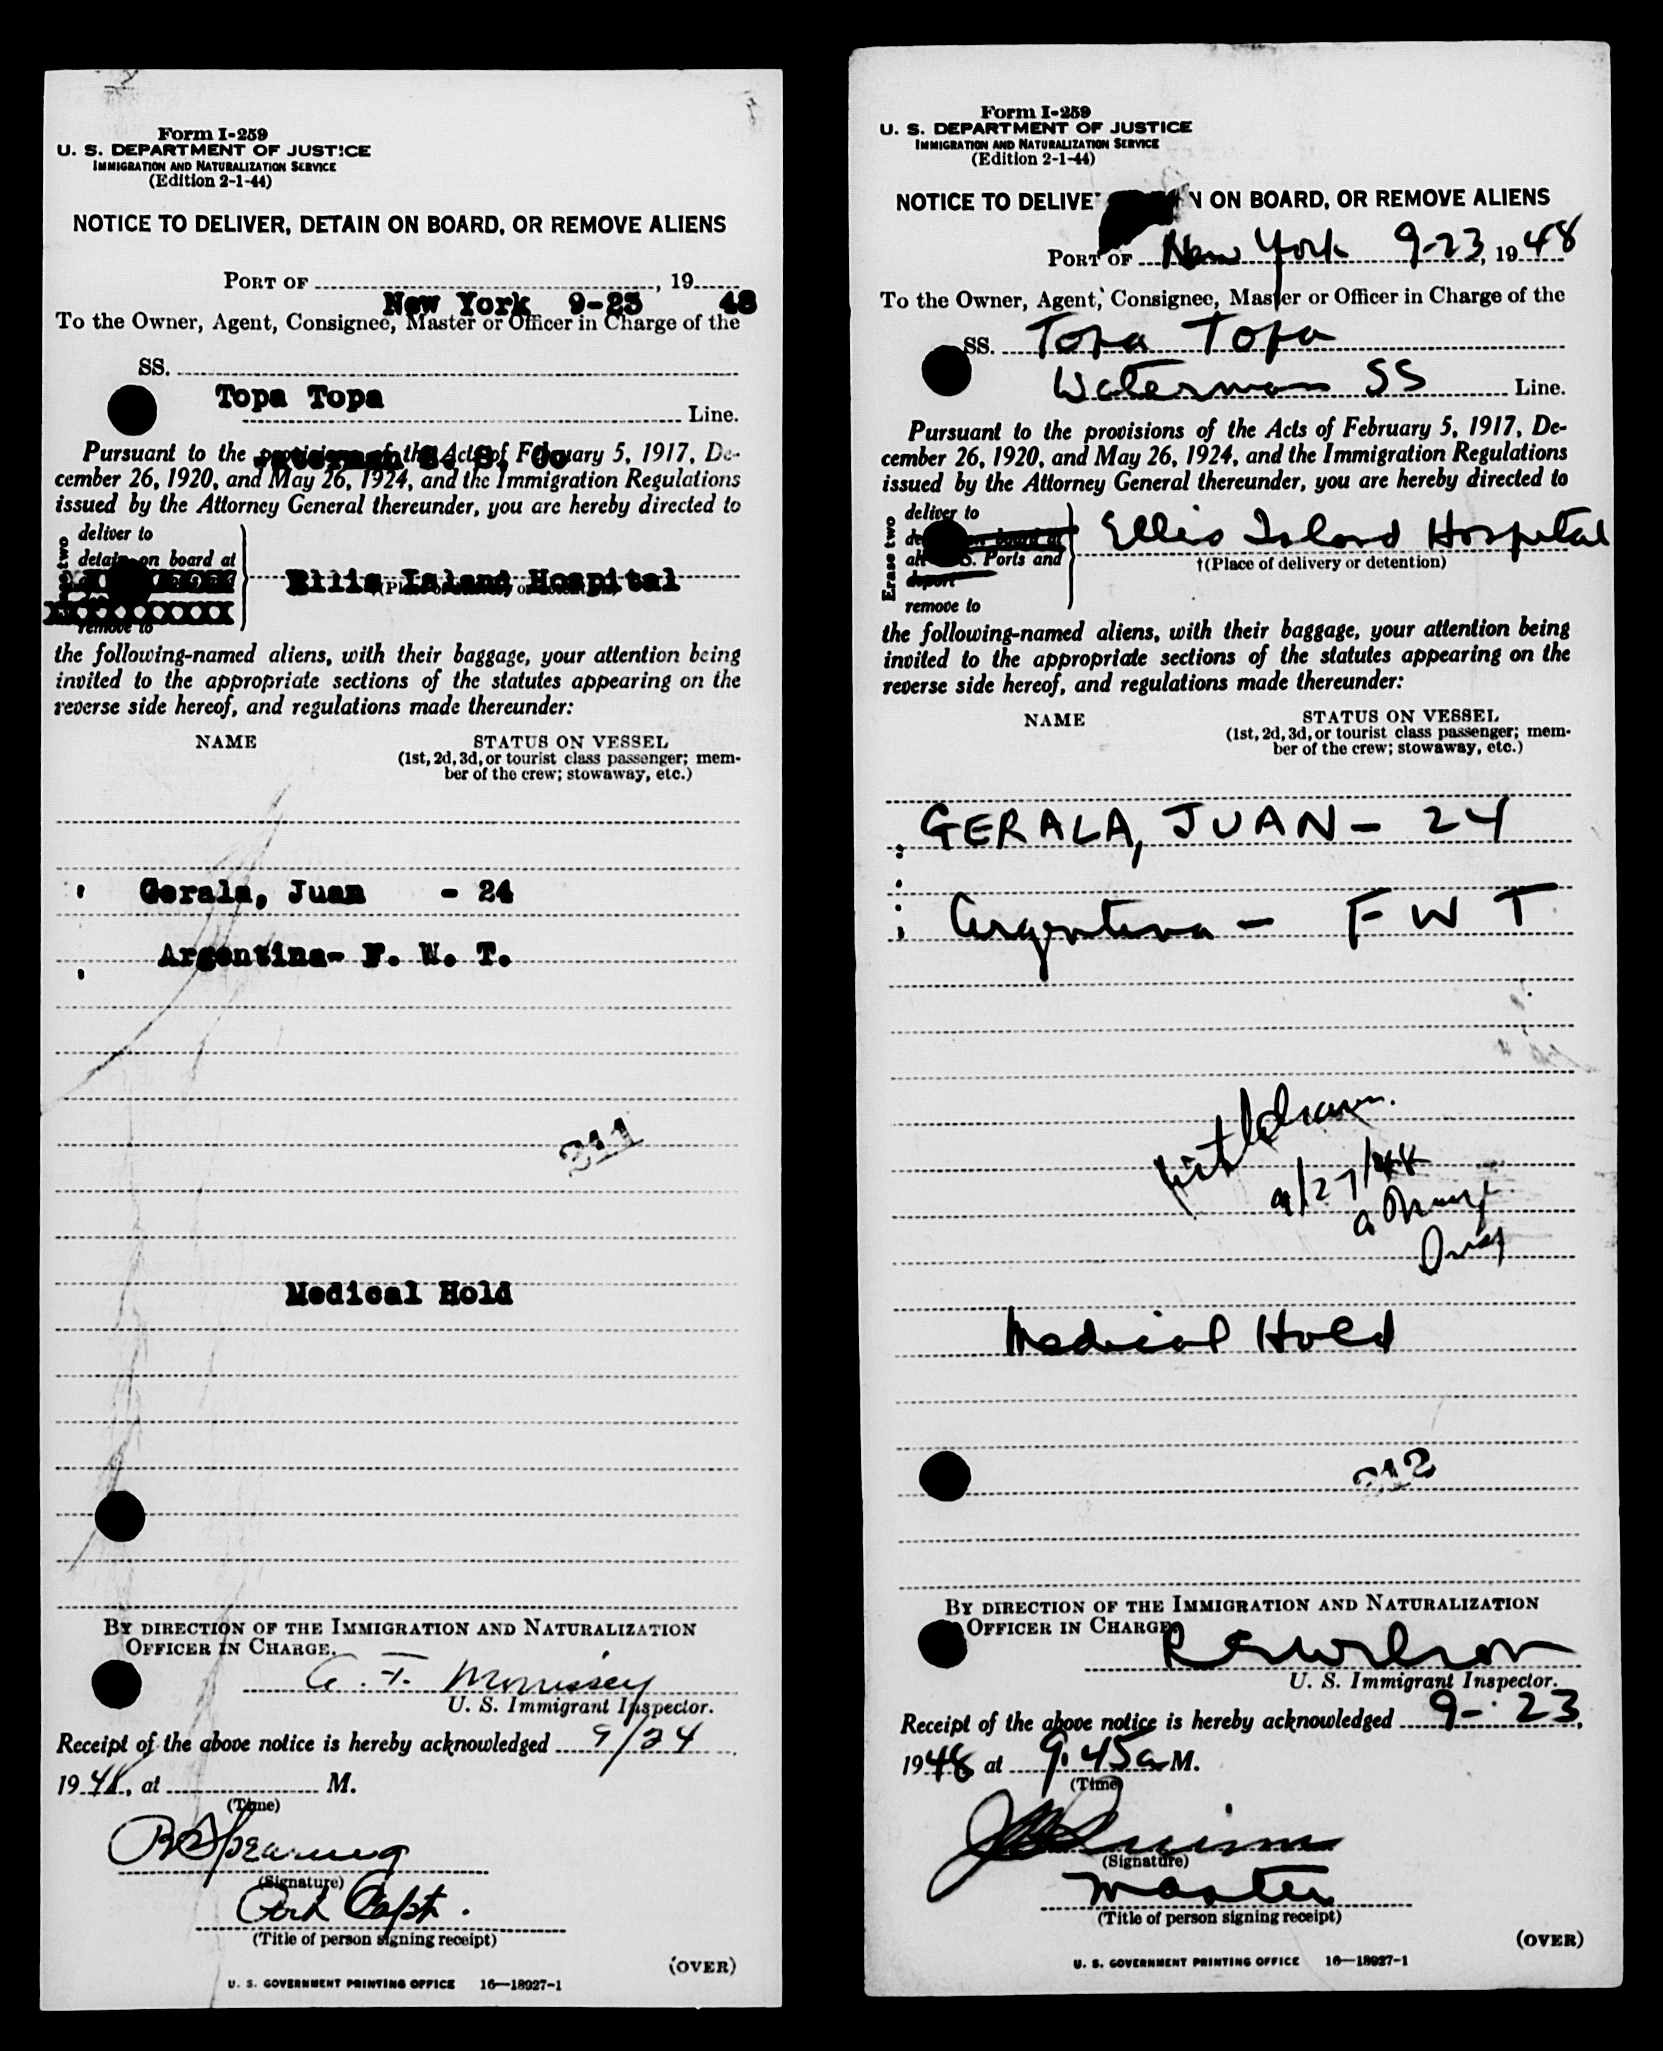 Form I-259
U. S. DEPARTMENT OF JUSTICE
IMMIGRATION AND NATURALIZATION SERVICE
(Edition 2-1-44)
NOTICE TO DELIVER, DETAIN ON BOARD, OR REMOVE ALIENS
PORT OF New York 9-23, 19 48
To the Owner, Agent, Consignee, Master or Officer in Charge of the
SS. Topa Topa
Line.
Waterman S. S. Co
Pursuant to the provisions of the Acts of February 5, 1917, De-
cember 26, 1920, and May 26, 1924, and the Immigration Regulations
issued by the Attorney General thereunder, you are hereby directed to
deliver to
detain on board at
Ellis Island Hospital
remove to
the following-named aliens, with their baggage, your attention being
invited to the appropriate sections of the statutes appearing on the
reverse side hereof, and regulations made thereunder:
NAME STATUS ON VESSEL
(1st, 2d, 3d, or tourist class passenger; mem-
ber of the crew; stowaway, etc.)
Gerala, Juan - 24
Argentina- F. W. T.
311
Medical Hold
BY DIRECTION OF THE IMMIGRATION AND NATURALIZATION
OFFICER IN CHARGE.
A. F. Morrissey
U. S. Immigrant Inspector.
Receipt of the above notice is hereby acknowledged 9/24
1948, at M.
(Time)
(Signature)
Port Capt.
(Title of person signing receipt)
(OVER)
U. S. GOVERNMENT PRINTING OFFICE 16—18927-1
Form I-259
U. S. DEPARTMENT OF JUSTICE
IMMIGRATION AND NATURALIZATION SERVICE
(Edition 2-1-44)
NOTICE TO DELIVE N ON BOARD, OR REMOVE ALIENS
PORT OF New York 9-23, 19 48
To the Owner, Agent, Consignee, Master or Officer in Charge of the
SS. Topa Topa
Waterman SS Line.
Pursuant to the provisions of the Acts of February 5, 1917, De-
cember 26, 1920, and May 26, 1924, and the Immigration Regulations
issued by the Attorney General thereunder, you are hereby directed to
Erase two
deliver to
on board at
Ports and
deport
remove to
Ellis Island Hospital
†(Place of delivery or detention)
the following-named aliens, with their baggage, your attention being
invited to the appropriate sections of the statutes appearing on the
reverse side hereof, and regulations made thereunder:
NAME STATUS ON VESSEL
(1st, 2d, 3d, or tourist class passenger; mem-
ber of the crew; stowaway, etc.)
GERALA, JUAN - 24
Argentina - F W T
Withdrawn.
9/27/48
Medical Hold
312
BY DIRECTION OF THE IMMIGRATION AND NATURALIZATION
OFFICER IN CHARGE.
Wilson
U. S. Immigrant Inspector.
Receipt of the above notice is hereby acknowledged 9-23,
1948 at 9.45a M.
(Time)
(Signature)
Master
(Title of person signing receipt)
(OVER)
U. S. GOVERNMENT PRINTING OFFICE 16—18927-1